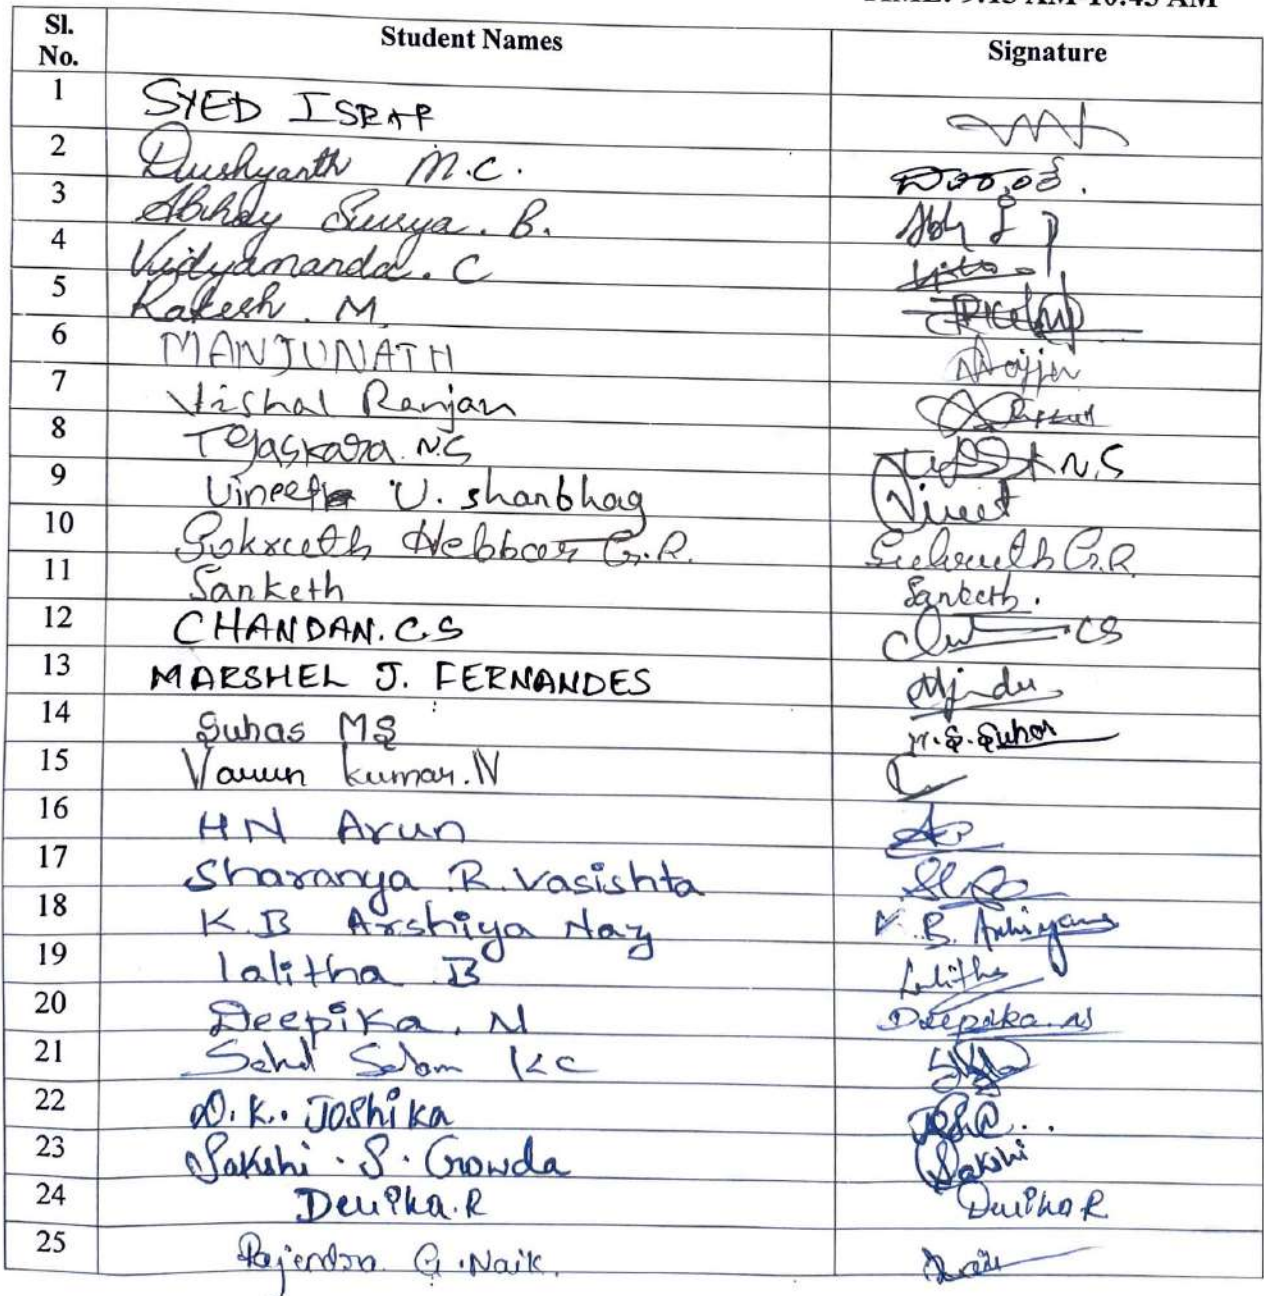 TIME: 9:45 AM-10:45 AM
Sl. No. Student Names Signature
1 SYED ISRAR
2 Dushyanth M.C.
3 Abhay Surya. B.
4 Vidyamanda. C
5 Rakesh. M
6 MANJUNATH
7 Vishal Ranjan
8 Tejaskara. N.S N.S
9 Vineet U. Shanbhag Vineet
10 Sukruth Hebbar G.R. Sukruth G.R
11 Sanketh Sanketh.
12 CHANDAN. C.S CS
13 MARSHEL J. FERNANDES
14 Suhas MS M.S. Suhas
15 Varun kumar. N
16 HN Arun
17 Sharanya .R. Vasishta
18 K.B Arshiya Naz K.B. Arshiya
19 lalitha B Lalitha
20 Deepika. N Deepika. N
21 Sahil Salam KC
22 D.K. Joshika
23 Sakshi . S . Gowda Sakshi
24 Devika.R Devika R
25 Rajendra G. Naik. Naik